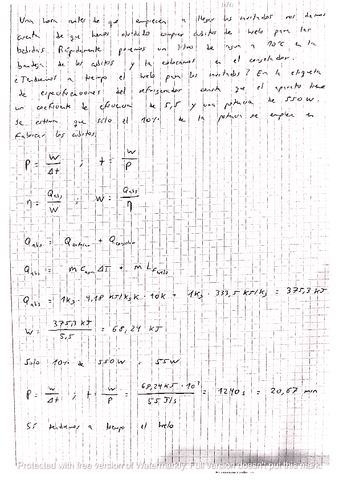 Una hora antes de que empiecen a llegar los invitados nos damos
cuenta de que hemos olvidado comprar cubitos de hielo para las
bebidas. Rápidamente ponemos un litro de agua a 10°C en la
bandeja de los cubitos y la colocamos en el congelador.
¿Tendremos a tiempo el hielo para los invitados? En la etiqueta
de especificaciones del refrigerador consta que el aparato tiene
un coeficiente de eficiencia de 5,5 y una potencia de 550W.
Se estima que solo el 10% de la potencia se emplea en
fabricar los cubitos.
P = W / Δt ; t = W / P
η = Qabs / W ; W = Qabs / η
Qabs = Q + Q
Qabs = m C ΔT + m L
Qabs = 1Kg · 4,18 KJ/Kg K · 10K + 1Kg · 333,5 KJ/Kg = 375,3 KJ
W = 375,3 KJ / 5,5 = 68,24 KJ
Solo 10% de 550W = 55W
P = W / Δt ; t = W / P = 68,24 KJ · 10³ / 55 J/s = 1240 s = 20,67 min
Sí tendremos a tiempo el hielo
Protected with free version of Watermarkly. Full version doesn't put this mark.